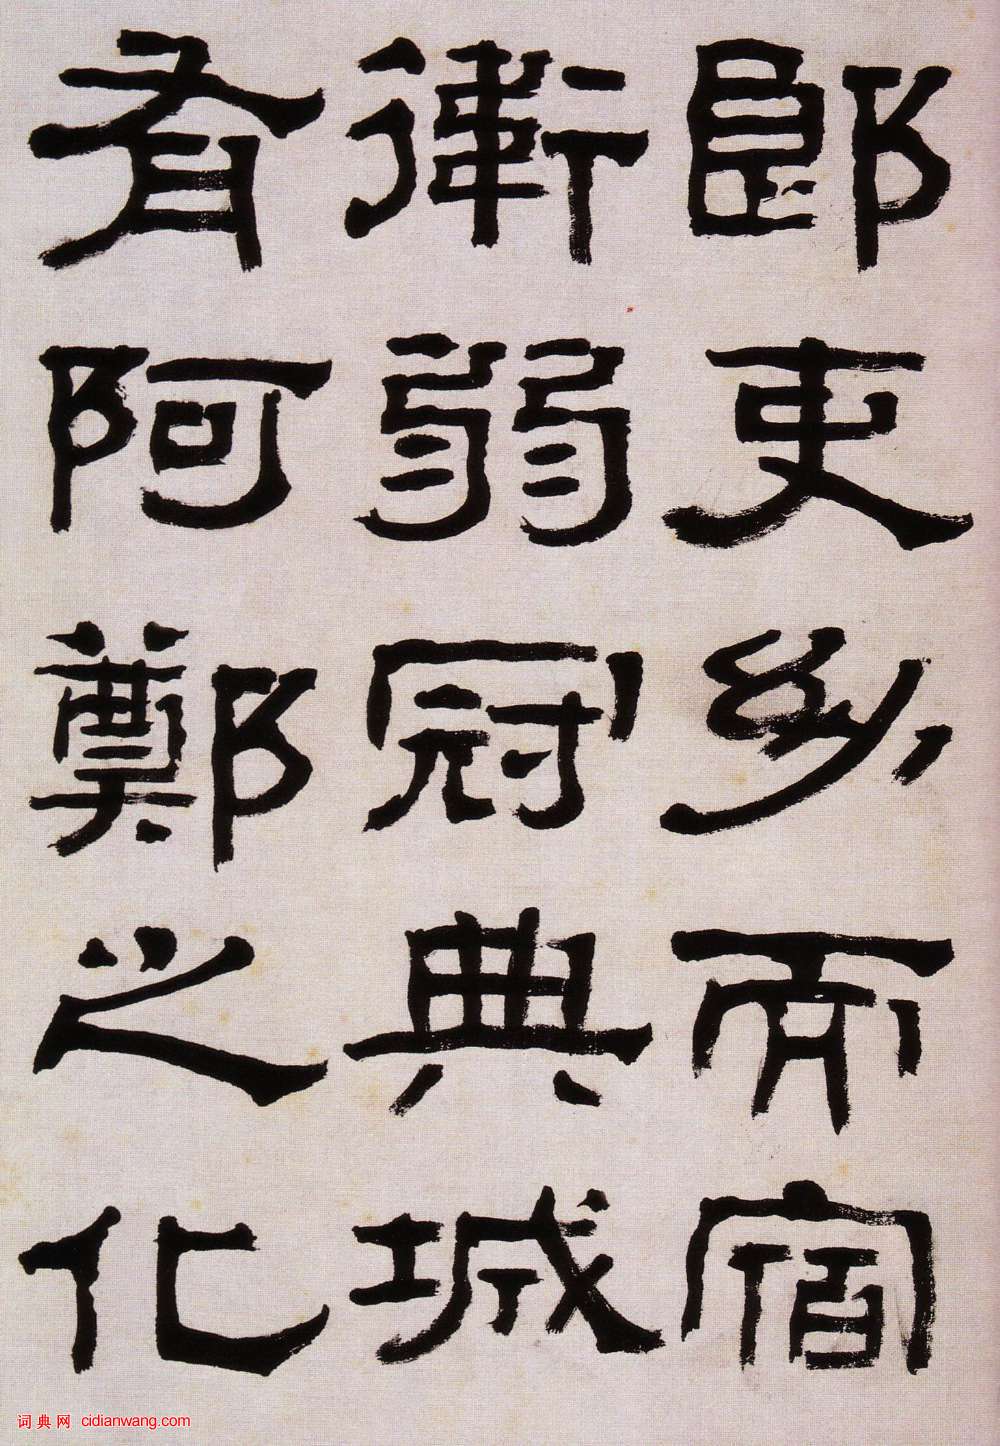 郎吏幼而宿
衛弱冠典城
有阿鄭之化
词典网 cidianwang.com